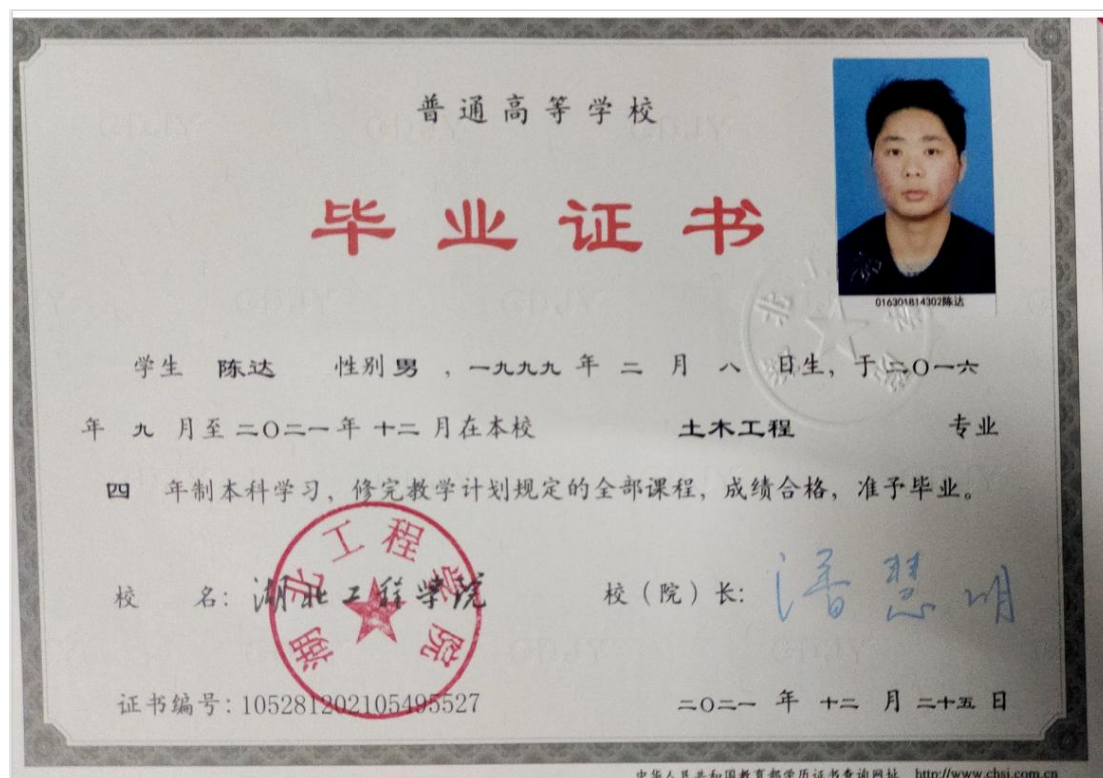 普通高等学校
毕业证书
016301814302陈达
学生 陈达 性别 男 ，一九九九 年 二 月 八 日生，于二〇一六
年 九 月至 二〇二一 年 十二 月在本校 土木工程 专业
四 年制本科学习，修完教学计划规定的全部课程，成绩合格，准予毕业。
校 名：湖北工程学院
湖北工程学院
校（院）长：潘慧明
证书编号：105281202105495527
二〇二一 年 十二 月 二十五 日
中华人民共和国教育部学历证书查询网址 http://www.chsi.com.cn